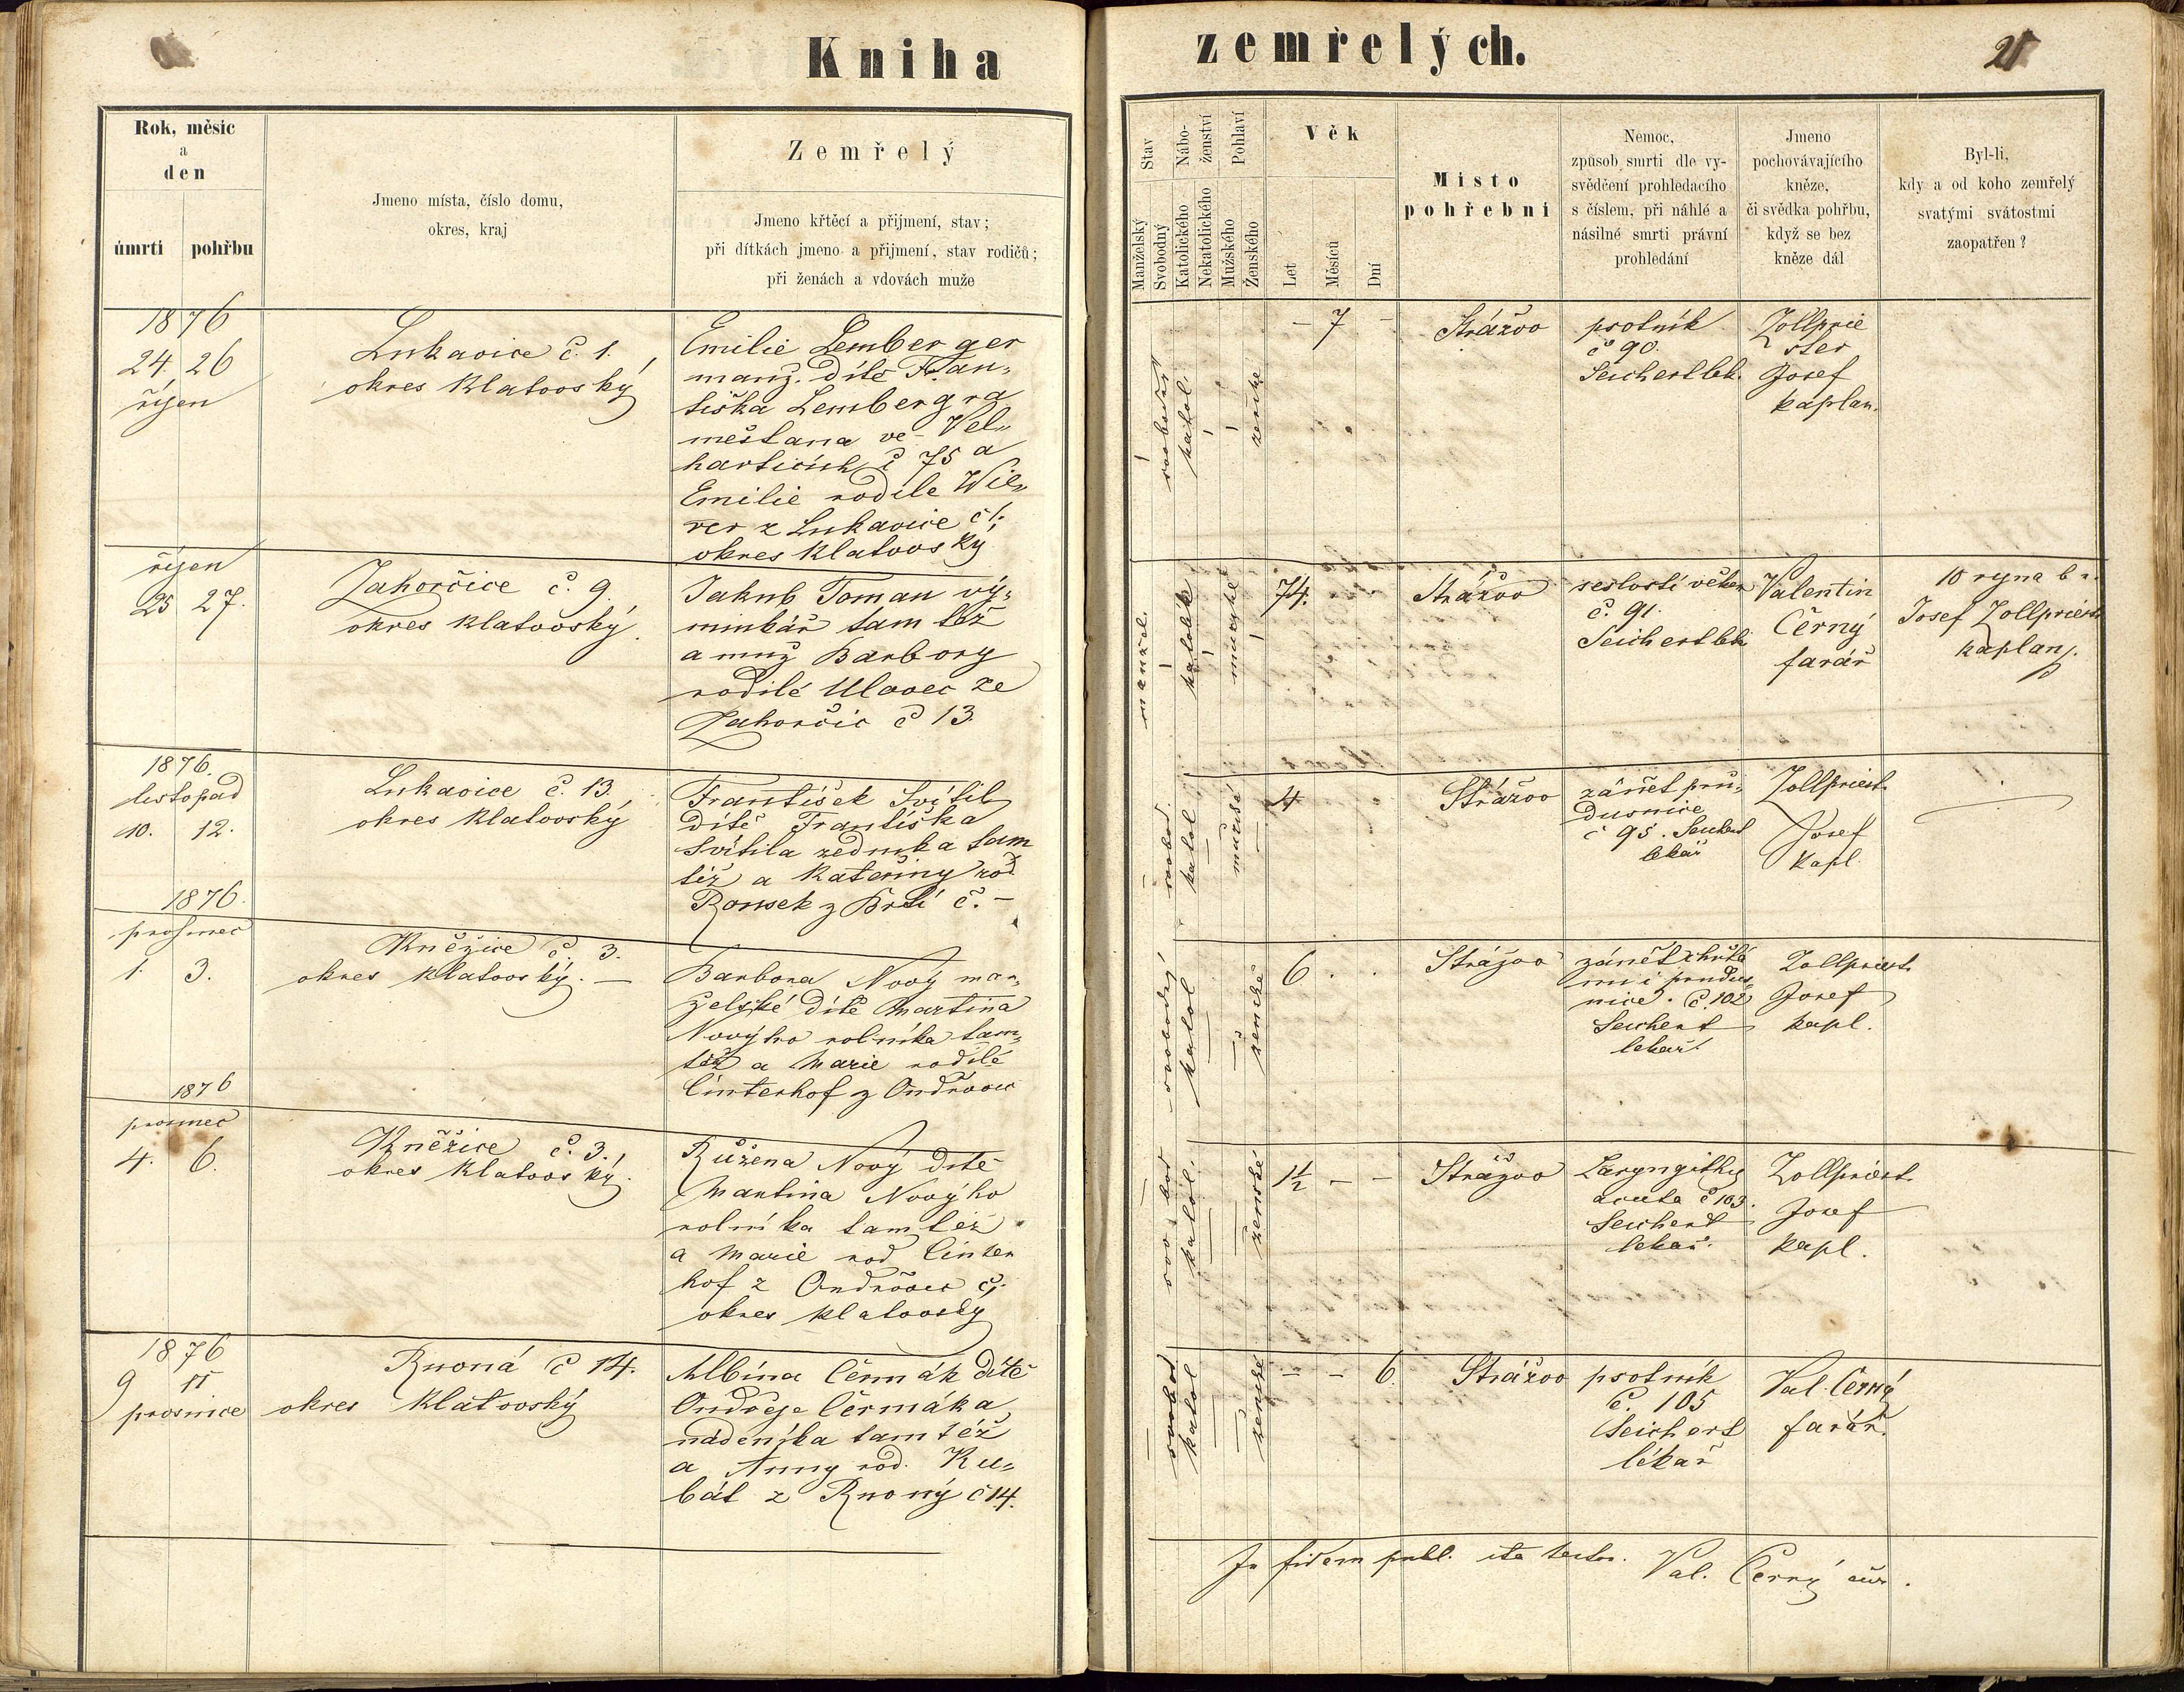 Kniha zemřelých.
21
Rok, měsíc
a
den
úmrtí
pohřbu
Jmeno místa, číslo domu,
okres, kraj
Zemřelý
Jmeno křtěcí a přijmení, stav;
při dítkách jmeno a přijmení, stav rodičů;
při ženách a vdovách muže
Stav
Manželský
Svobodný
Nábo-
ženství
Katolického
Nekatolického
Pohlaví
Mužského
Ženského
Věk
Let
Měsíců
Dní
Místo
pohřební
Nemoc,
způsob smrti dle vy-
svědčení prohledacího
s číslem, při náhlé a
násilné smrti právní
prohledání
Jmeno
pochovávajícího
kněze,
či svědka pohřbu,
když se bez
kněze dál
Byl-li,
kdy a od koho zemřelý
svatými svátostmi
zaopatřen?
1876
24 26
říjen
Lukavice č. 1.
okres Klatovský
Emilie Lemberger
manž. dítě Fran-
tiška Lembergra
měšťana ve Vel-
harticích č 75 a
Emilie rodilé
z Lukavice č 1.
okres Klatovský
svobodný
katol.
ženské
- 7 -
Strážov
psotník
č 90.
Seichert lék.
Zollprie
ster
Josef
kaplan.
říjen
25 27.
Zahorčice č. 9
okres Klatovský.
Jakub Toman vý-
minkář tam též
a muž Barbory
rodilé Ulovec ze
Zahorčic č 13.
manžel.
katolik
mužské
74.
Strážov
sešlostí věkem
č. 91.
Seichert lék.
Valentin
Černý
farář
10 října b r.
Josef Zollpriest.
kaplan
1876.
listopad
10. 12.
Lukavice č. 13.
okres Klatovský
František Svítil
dítě Františka
Svítila zedníka tam
též a Kateřiny rod
z Brtí č. -
svobod.
katol
mužské
4
Strážov
zánět prů-
dusnice
č 95. Seichert
lékař
Zollpriest.
Josef
Kapl.
1876.
prosinec
1. 3.
Kněžice č. 3.
okres Klatovský. -
Barbora Nový man-
želské dítě Martina
Novýho rolníka tam-
též a Marie rodilé
Cinterhof z Ondřovic
svobodný
katol
ženské
6 . .
Strážov
zánět chřtá
nu i průdus-
nice. č. 102
Seichert
lékař.
Zollpriest.
Josef
kapl.
1876
prosinec
4. 6.
Kněžice č. 3.
okres Klatovský.
Růžena Nový dítě
Martina Novýho
rolníka tamtéž
a Marie rod Cinter
hof z Ondřovic č.
okres Klatovský
svobod
katol.
ženské
1½ - -
Strážov
Laryngitis
acuta č 103.
Seichert
lékař.
Zollpriest.
Josef
kapl.
1876
9 11
prosince
Rovná č 14.
okres Klatovský
Albína Čermák dítě
Ondřeje Čermáka
nádeníka tamtéž
a Anny rod. Ku-
bát z Rovný č 14.
svobod
katol
ženské
- - 6.
Strážov
psotník
č. 105
Seichert
lékař
Val. Černý
farář.
In fidem publ. ita testor. Val. Černý